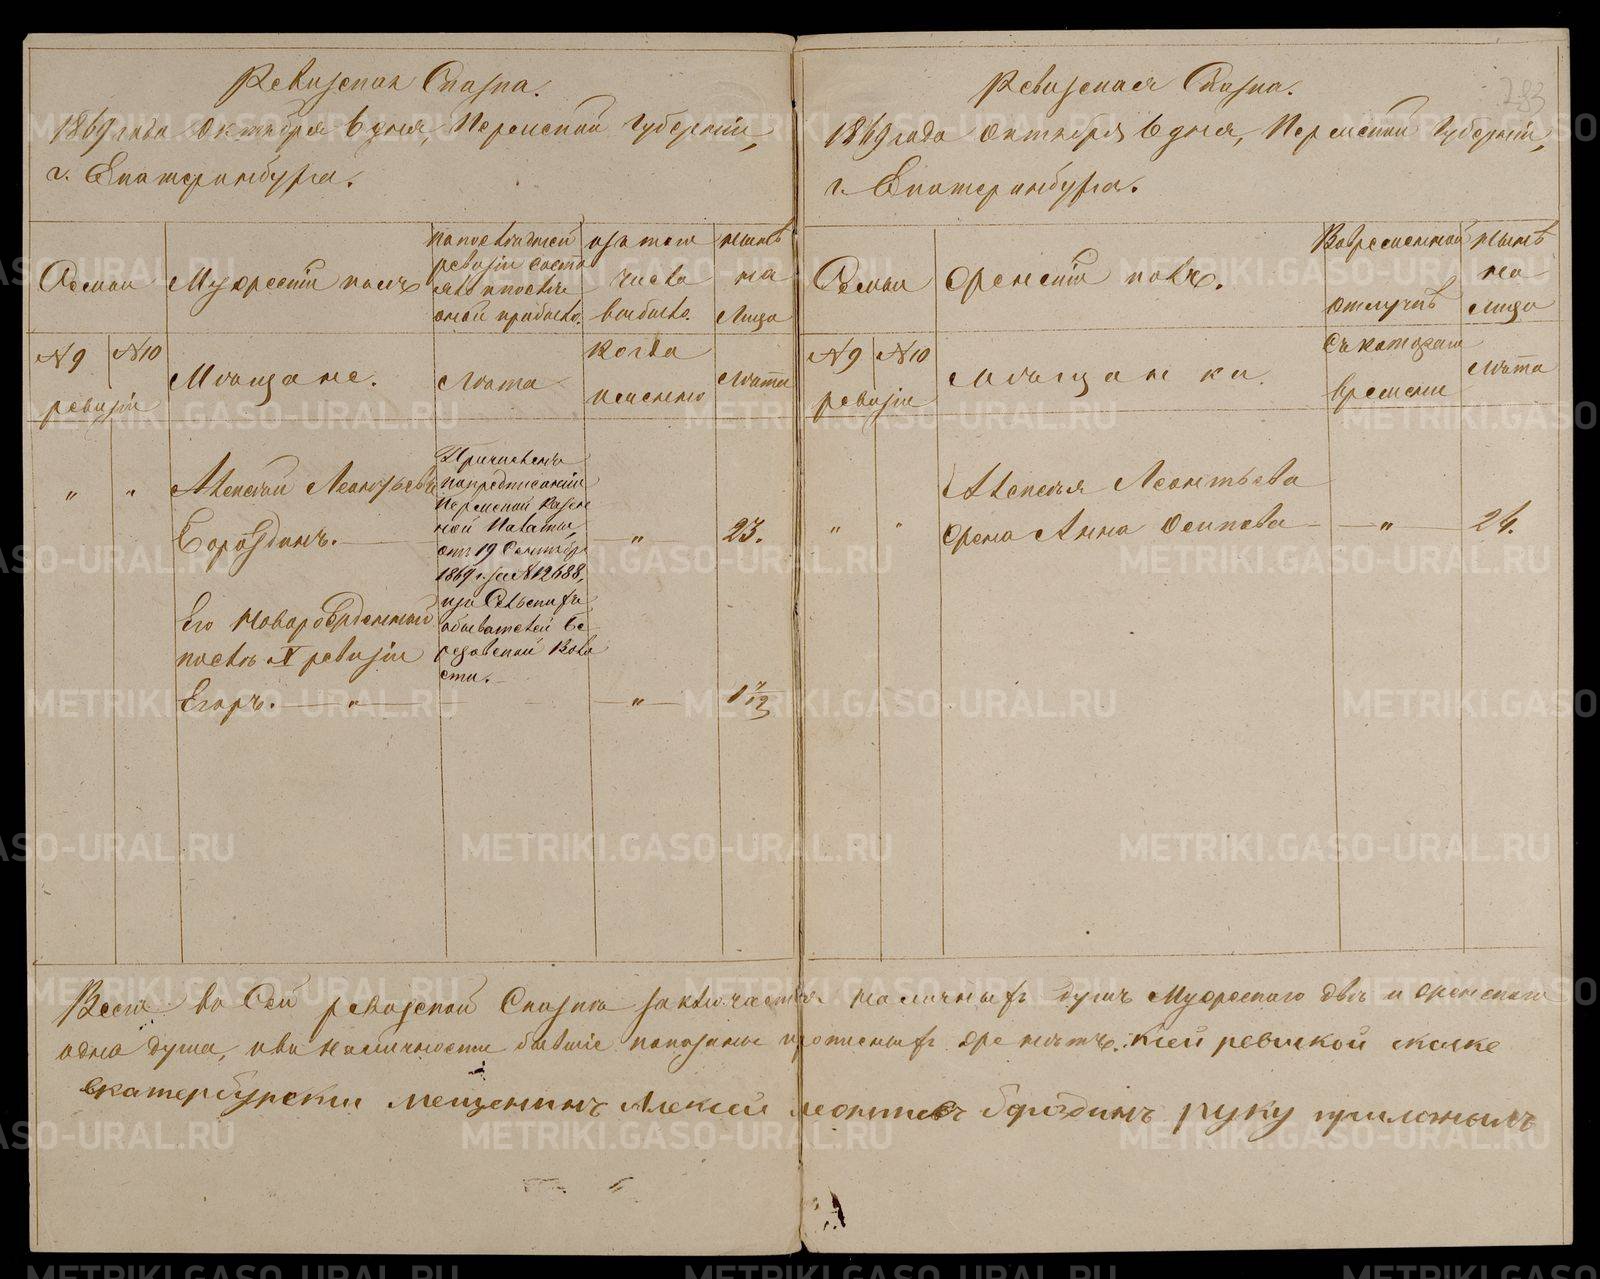 Ревизская Сказка.
1869 года Октября 6 дня, Пермской Губернiи,
г. Екатеринбурга.
Семьи
Мужескiй полъ
По последней
ревизiи состо
яло и после
оной прибыло.
Изъ того
числа
выбыло.
Ныне
на
Лицо
№ 9 №10
ревизiи
Мещане.
Лета
Когда
именно
Лета
" " Алексей Леонтьевъ
Бороздинъ. " 23.
Причисленъ
по предписанiю
Пермской Казен
ной Палаты,
отъ 19 Сентября
1869 г. за №12688,
изъ Сельскихъ
обывателей Бе
резовской Воло
сти.
Его Новорожденный
после X ревизiи
Егоръ. " " 1 7/12
Ревизская Сказка.
293
1869 года Октября 6 дня, Пермской Губернiи,
г. Екатеринбурга.
Семьи
Женскiй полъ.
Во временной
отлучке
Ныне
на
лицо
№ 9 №10
ревизiи
Мещанки.
Съ котораго
времени
Лета
Алексея Леонтьева
" " жена Анна Осипова " 24.
Всего въ Сей ревизской Сказке заключается наличныхъ душъ Мужескаго две и женскаго
одна душа, и въ Наличности бывшiе показаны прописныхъ же нетъ. К сей ревиской скаске
екатербурски мещенинъ Алексей леонтиевъ бороздинъ руку приложылъ
METRIKI.GASO-URAL.RU